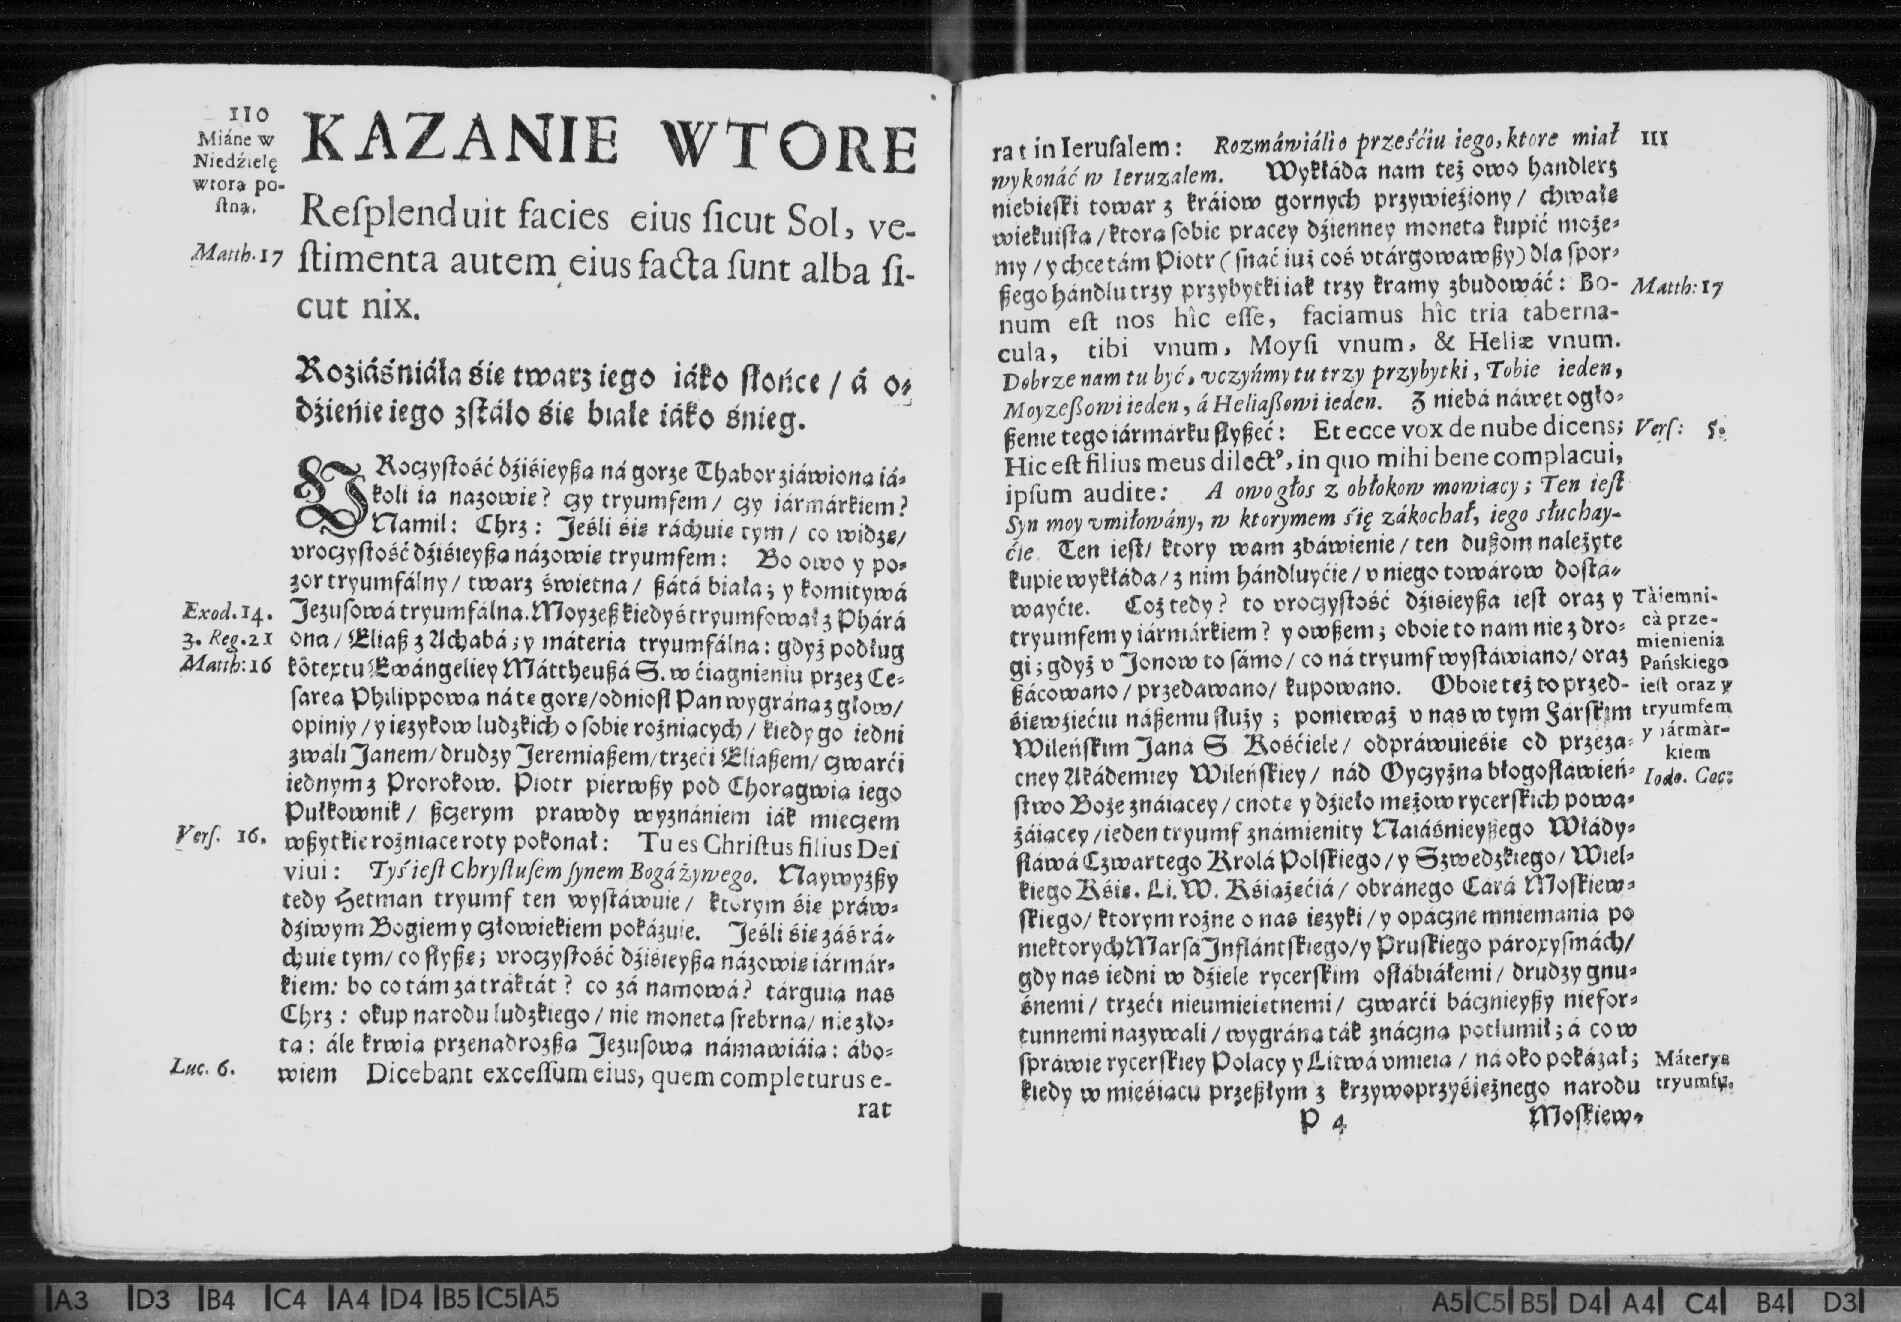 110
Miáne w
Niedźielę
wtorą po-
stną.
KAZANIE WTORE
Reſplenduit facies eius ſicut Sol, ve-
Matth. 17
ſtimenta autem eius facta ſunt alba ſi-
cut nix.
Roziáśniáłá śie twarz iego iáko słońce / á o-
dźieńie iego zſtáło śie białe iáko śnieg.
VRoczyſtość dźiśieyßą ná gorze Thabor ziáwioną iá-
koli ia nazowię? czy tryumfem / czy iármárkiem?
Namil: Chrz: Jeśli śię ráchuię tym / co widzę/
vroczyſtość dźiśieyßą názowię tryumfem: Bo owo y po-
zor tryumfálny / twarz świetna / ßátá biała; y komitywá
Exod. 14.
Jezuſowá tryumfálna. Moyzeß kiedyś tryumfował z Phárá
3. Reg. 21
ona / Eliaß z Achabá; y máteria tryumfálna: gdyż podług
Matth: 16
kõtextu Ewángeliey Máttheußá S. w ćiągnieniu przez Ce-
ſareą Philippową ná tę gorę / odniosł Pan wygráną z głow/
opiniy / y ięzykow ludzkich o ſobie rożniących / kiedy go iedni
zwáli Janem / drudzy Jeremiaßem / trzeći Eliaßem / czwarći
iednym z Prorokow. Piotr pierwßy pod Chorągwią iego
Pułkownik / ßczerym prawdy wyznániem iák mieczem
Verſ. 16.
wßytkie rożniące roty pokonał: Tu es Chriſtus filius Dei
viui: Tyś ieſt Chryſtuſem ſynem Bogá żywego. Naywyżßy
tedy Hetman tryumf ten wyſtáwuie / ktorym śię práw-
dźiwym Bogiem y człowiekiem pokázuie. Jeśli śię záś rá-
chuię tym / co słyßę; vroczyſtość dźiśieyßą názowię iármár-
kiem: bo co tám zá tráktát? co zá namowá? tárguią nas
Chrz: okup narodu ludzkiego / nie monetą ſrebrną / nie zło-
tą: ále krwią przenadroższą Jezuſową námawiáią: ábo-
Luc. 6.
wiem Dicebant exceſſum eius, quem completurus e-
rat
111
rat in Ieruſalem: Rozmáwiáli o prześćiu iego, ktore miał
wykonáć w Ieruzalem. Wykłáda nam też owo handlerz
niebieſki towar z kráiow gornych przywieźiony / chwałę
wiekuiſtą / ktorą ſobie pracey dźienney monetą kupić może-
my / y chce tám Piotr (ſnać iuż coś vtárgowawßy) dla ſpor-
ßego hándlu trzy przybytki iak trzy kramy zbudowáć: Bo-
Matth: 17
num eſt nos hîc eſſe, faciamus hîc tria taberna-
cula, tibi vnum, Moyſi vnum, & Heliæ vnum.
Dobrze nam tu być, vczyńmy tu trzy przybytki, Tobie ieden,
Moyzeßowi ieden, á Heliaßowi ieden. Z niebá náwet ogło-
ßenie tego iármárku słyßeć: Et ecce vox de nube dicens;
Verſ: 5.
Hic eſt filius meus dilectꝰ, in quo mihi bene complacui,
ipſum audite: A owo głos z obłokow mowiący; Ten ieſt
Syn moy vmiłowány, w ktorymem śię zákochał, iego słuchay-
ćie. Ten ieſt / ktory wam zbáwienie / ten dußom należyte
kupie wykłáda / z nim hándluyćie / v niego towárow doſtá-
wayćie. Coż tedy? to vroczyſtość dźiśieyßa ieſt oraz y
Táiemni-
cá prze-
mienienia
Pańskiego
ieſt oraz y
tryumfem
y iármár-
kiem
tryumfem y iármárkiem? y owßem; oboie to nam nie z dro-
gi; gdyż v Jonow to ſámo / co ná tryumf wyſtáwiano / oraz
ßácowano / przedawano / kupowano. Oboie też to przed-
śięwźięćiu náßemu służy; ponieważ v nas w tym Fárſkim
Wileńſkim Janá S. Kośćiele / odpráwuie śię od przeza-
cney Akádemiey Wileńſkiey / nád Oyczyzną błogosławień-
ſtwo Boże znáiącey / cnotę y dźieło mężow rycerſkich powa-
żáiącey / ieden tryumf známienity Naiáśnieyßego Włády-
sławá Czwartego Krolá Polſkiego / y Szwedzkiego / Wiel-
kiego Xśię. Li. W. Xśiążęćiá / obránego Cará Moſkiew-
ſkiego / ktorym rożne o nas ięzyki / y opáczne mniemania po
niektorych Marſá Inflántſkiego / y Pruſkiego pároxyſmách/
gdy nas iedni w dźiele rycerſkim osłábiáłemi / drudzy gnu-
śnemi / trzeći nieumieiętnemi / czwarći bácznieyßy niefor-
tunnemi nazywali / wygráną ták znáczną potłumił; á co w
ſpráwie rycerſkiey Polacy y Litwá vmieią / ná oko pokázał;
Máterya
tryumfu.
kiedy w mieśiącu przeßłym z krzywoprzyśiężnego narodu
P 4
Moſkiew-
A3 D3 B4 C4 A4 D4 B5 C5 A5
A5 C5 B5 D4 A4 C4 B4 D3